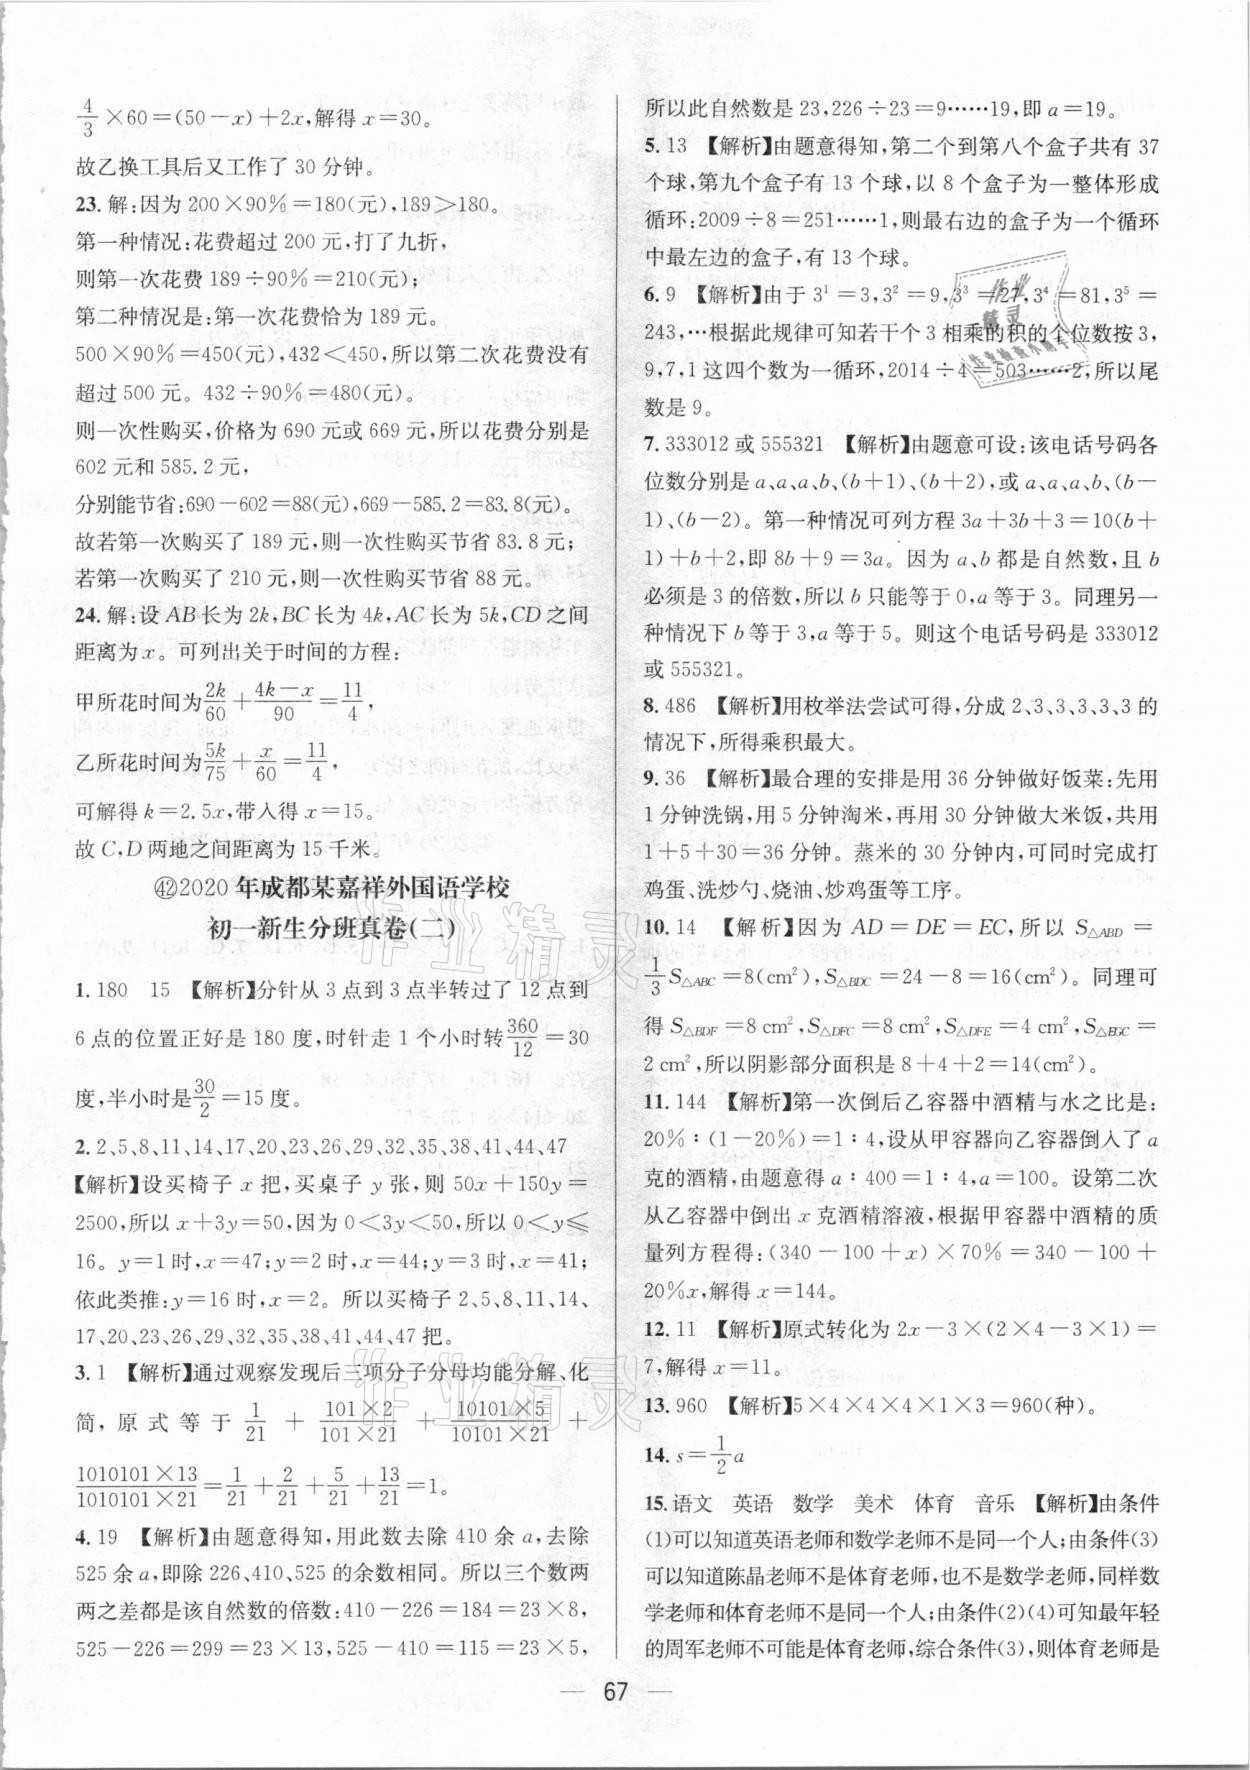 4/3×60=(50-x)+2x,解得 x=30。
故乙换工具后又工作了 30 分钟。
23.解:因为 200×90%=180(元),189>180。
第一种情况:花费超过 200 元,打了九折,
则第一次花费 189÷90%=210(元);
第二种情况是:第一次花费恰为 189 元。
500×90%=450(元),432<450,所以第二次花费没有
超过 500 元。432÷90%=480(元)。
则一次性购买,价格为 690 元或 669 元,所以花费分别是
602 元和 585.2 元,
分别能节省:690-602=88(元),669-585.2=83.8(元)。
故若第一次购买了 189 元,则一次性购买节省 83.8 元;
若第一次购买了 210 元,则一次性购买节省 88 元。
24.解:设 AB 长为 2k,BC 长为 4k,AC 长为 5k,CD 之间
距离为 x。可列出关于时间的方程:
甲所花时间为 2k/60+(4k-x)/90=11/4,
乙所花时间为 5k/75+x/60=11/4,
可解得 k=2.5x,带入得 x=15。
故 C,D 两地之间距离为 15 千米。
㊷2020 年成都某嘉祥外国语学校
初一新生分班真卷(二)
1.180 15 【解析】分针从 3 点到 3 点半转过了 12 点到
6 点的位置正好是 180 度,时针走 1 个小时转 360/12=30
度,半小时是 30/2=15 度。
2.2,5,8,11,14,17,20,23,26,29,32,35,38,41,44,47
【解析】设买椅子 x 把,买桌子 y 张,则 50x+150y=
2500,所以 x+3y=50,因为 0<3y<50,所以 0<y≤
16。y=1 时,x=47;y=2 时,x=44;y=3 时,x=41;
依此类推:y=16 时,x=2。所以买椅子 2,5,8,11,14,
17,20,23,26,29,32,35,38,41,44,47 把。
3.1 【解析】通过观察发现后三项分子分母均能分解、化
简,原式等于 1/21 + (101×2)/(101×21) + (10101×5)/(10101×21) +
(1010101×13)/(1010101×21)=1/21+2/21+5/21+13/21=1。
4.19 【解析】由题意得知,用此数去除 410 余 a,去除
525 余 a,即除 226、410、525 的余数相同。所以三个数两
两之差都是该自然数的倍数:410-226=184=23×8,
525-226=299=23×13,525-410=115=23×5,
所以此自然数是 23,226÷23=9……19,即 a=19。
5.13 【解析】由题意得知,第二个到第八个盒子共有 37
个球,第九个盒子有 13 个球,以 8 个盒子为一整体形成
循环:2009÷8=251……1,则最右边的盒子为一个循环
中最左边的盒子,有 13 个球。
6.9 【解析】由于 3¹=3,3²=9,3³=27,3⁴=81,3⁵=
243,…根据此规律可知若干个 3 相乘的积的个位数按 3,
9,7,1 这四个数为一循环,2014÷4=503……2,所以尾
数是 9。
7.333012 或 555321 【解析】由题意可设:该电话号码各
位数分别是 a、a、a、b、(b+1)、(b+2),或 a、a、a、b、(b-
1)、(b-2)。第一种情况可列方程 3a+3b+3=10(b+
1)+b+2,即 8b+9=3a。因为 a、b 都是自然数,且 b
必须是 3 的倍数,所以 b 只能等于 0,a 等于 3。同理另一
种情况下 b 等于 3,a 等于 5。则这个电话号码是 333012
或 555321。
8.486 【解析】用枚举法尝试可得,分成 2、3、3、3、3、3 的
情况下,所得乘积最大。
9.36 【解析】最合理的安排是用 36 分钟做好饭菜:先用
1 分钟洗锅,用 5 分钟淘米,再用 30 分钟做大米饭,共用
1+5+30=36 分钟。蒸米的 30 分钟内,可同时完成打
鸡蛋、洗炒勺、烧油、炒鸡蛋等工序。
10.14 【解析】因为 AD=DE=EC,所以 S△ABD=
1/3S△ABC=8(cm²),S△BDC=24-8=16(cm²)。同理可
得 S△BDF=8 cm²,S△DFC=8 cm²,S△DFE=4 cm²,S△EGC=
2 cm²,所以阴影部分面积是 8+4+2=14(cm²)。
11.144 【解析】第一次倒后乙容器中酒精与水之比是:
20%∶(1-20%)=1∶4,设从甲容器向乙容器倒入了 a
克的酒精,由题意得 a∶400=1∶4,a=100。设第二次
从乙容器中倒出 x 克酒精溶液,根据甲容器中酒精的质
量列方程得:(340-100+x)×70%=340-100+
20%x,解得 x=144。
12.11 【解析】原式转化为 2x-3×(2×4-3×1)=
7,解得 x=11。
13.960 【解析】5×4×4×4×1×3=960(种)。
14.s=1/2a
15.语文 英语 数学 美术 体育 音乐 【解析】由条件
(1)可以知道英语老师和数学老师不是同一个人;由条件(3)
可以知道陈晶老师不是体育老师,也不是数学老师,同样数
学老师和体育老师不是同一个人;由条件(2)(4)可知最年轻
的周军老师不可能是体育老师,综合条件(3),则体育老师是
— 67 —
作业精灵
作业精灵
作业
精灵